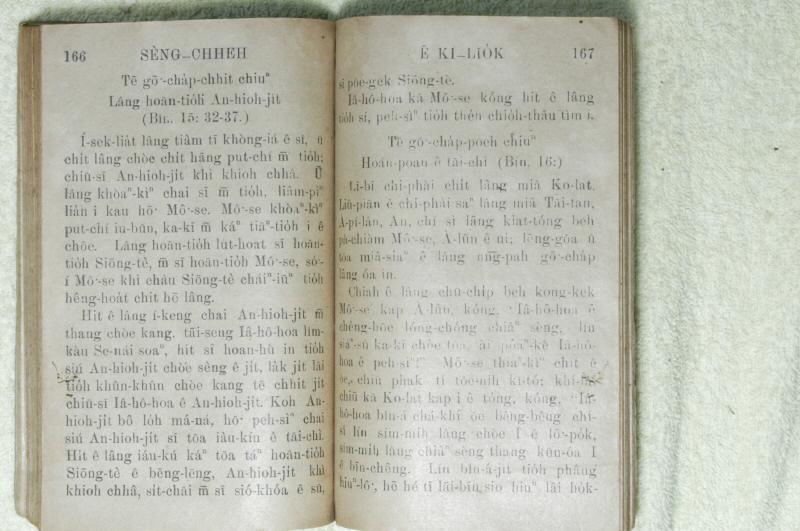 166 SÈNG-CHHEH
Tē gō͘-cha̍p-chhit chiuⁿ
Lâng hoān-tio̍h An-hioh-ji̍t
(BIN. 15: 32-37.)
Í-sek-lia̍t lâng tiàm tī khòng-iá ê sî, ū
chi̍t lâng chòe chi̍t hāng put-chí m̄ tio̍h;
chiū-sī An-hioh-ji̍t khì khioh chhâ. Ū
lâng khòaⁿ-kìⁿ chai sī m̄ tio̍h, liâm-piⁿ
liàn i kàu hō͘ Mô͘-se. Mô͘-se khòaⁿ-kìⁿ
put-chí iu-būn, ka-kī m̄ káⁿ tiāⁿ-tio̍h i ê
chōe. Lâng hoān-tio̍h lu̍t-hoat sī hoān-
tio̍h Siōng-tè, m̄ sī hoān-tio̍h Mô͘-se, só͘-
í Mô͘-se khì chàu Siōng-tè chāiⁿ-iūⁿ tio̍h
hêng-hoa̍t chit hō lâng.
Hit ê lâng í-keng chai An-hioh-ji̍t m̄
thang chòe kang. tāi-seng Iâ-hô-hoa lîm-
kàu Se-nái soaⁿ, hit sî hoan-hù in tio̍h
siú An-hioh-ji̍t chòe sèng ê ji̍t, la̍k ji̍t lāi
tio̍h khûn-khûn chòe kang tē chhit ji̍t
chiū-sī Iâ-hô-hoa ê An-hioh-ji̍t. Koh An-
hioh-ji̍t bô lo̍h má-ná, hō͘ peh-sìⁿ chai
siú An-hioh-ji̍t sī tōa iàu-kín ê tāi-chì.
Hit ê lâng iáu-kú káⁿ tōa táⁿ hoān-tio̍h
Siōng-tè ê bēng-lēng, An-hioh-ji̍t khì
khioh chhâ, si̍t-chāi m̄ sī sió-khóa ê sū,
Ê KÍ-LIO̍K 167
sī póe-ge̍k Siōng-tè.
Iâ-hô-hoa kā Mô͘-se kóng hit ê lâng
tio̍h sí, peh-sìⁿ tio̍h the̍h chio̍h-thâu tìm i.
Tē gō͘-cha̍p-poeh chiuⁿ
Hoán-poān ê tāi-chì (BIN. 16:)
Lī-bī chi-phài chi̍t lâng miâ Ko-la̍t,
Liû-piān ê chi-phài saⁿ lâng miâ Tāi-tan,
A-pí-lân, An, chí sì lâng kiat-tóng beh
pà-chiàm Mô͘-se, À-lûn ê ūi; lēng-gōa ū
tōa miâ-siaⁿ ê lâng nn̄g-pah gō͘-cha̍p
lâng óa in.
Chiah ê lâng chū-chi̍p beh kong-kek
Mô͘-se kap À-lûn, kóng, Iâ-hô-hoa ê
chêng-hōe lóng-chóng chiâⁿ sèng, lín
Mô͘-se thiaⁿ-kìⁿ chit ê
kā Ko-la̍t kap i ê tóng, kóng, Iâ-
hô-hoa bîn-á chá-khí ōe bêng-bêng chí-
sī lín sím-mi̍h lâng chòe I ê lô͘-po̍k,
sím-mi̍h lâng chiâⁿ sèng thang kūn-óa I
ê bīn-chêng. Lín bîn-á-ji̍t tio̍h phâng
hiuⁿ-lô͘, hē hé tī lāi-bīn, sio hiuⁿ lâi ho̍k-